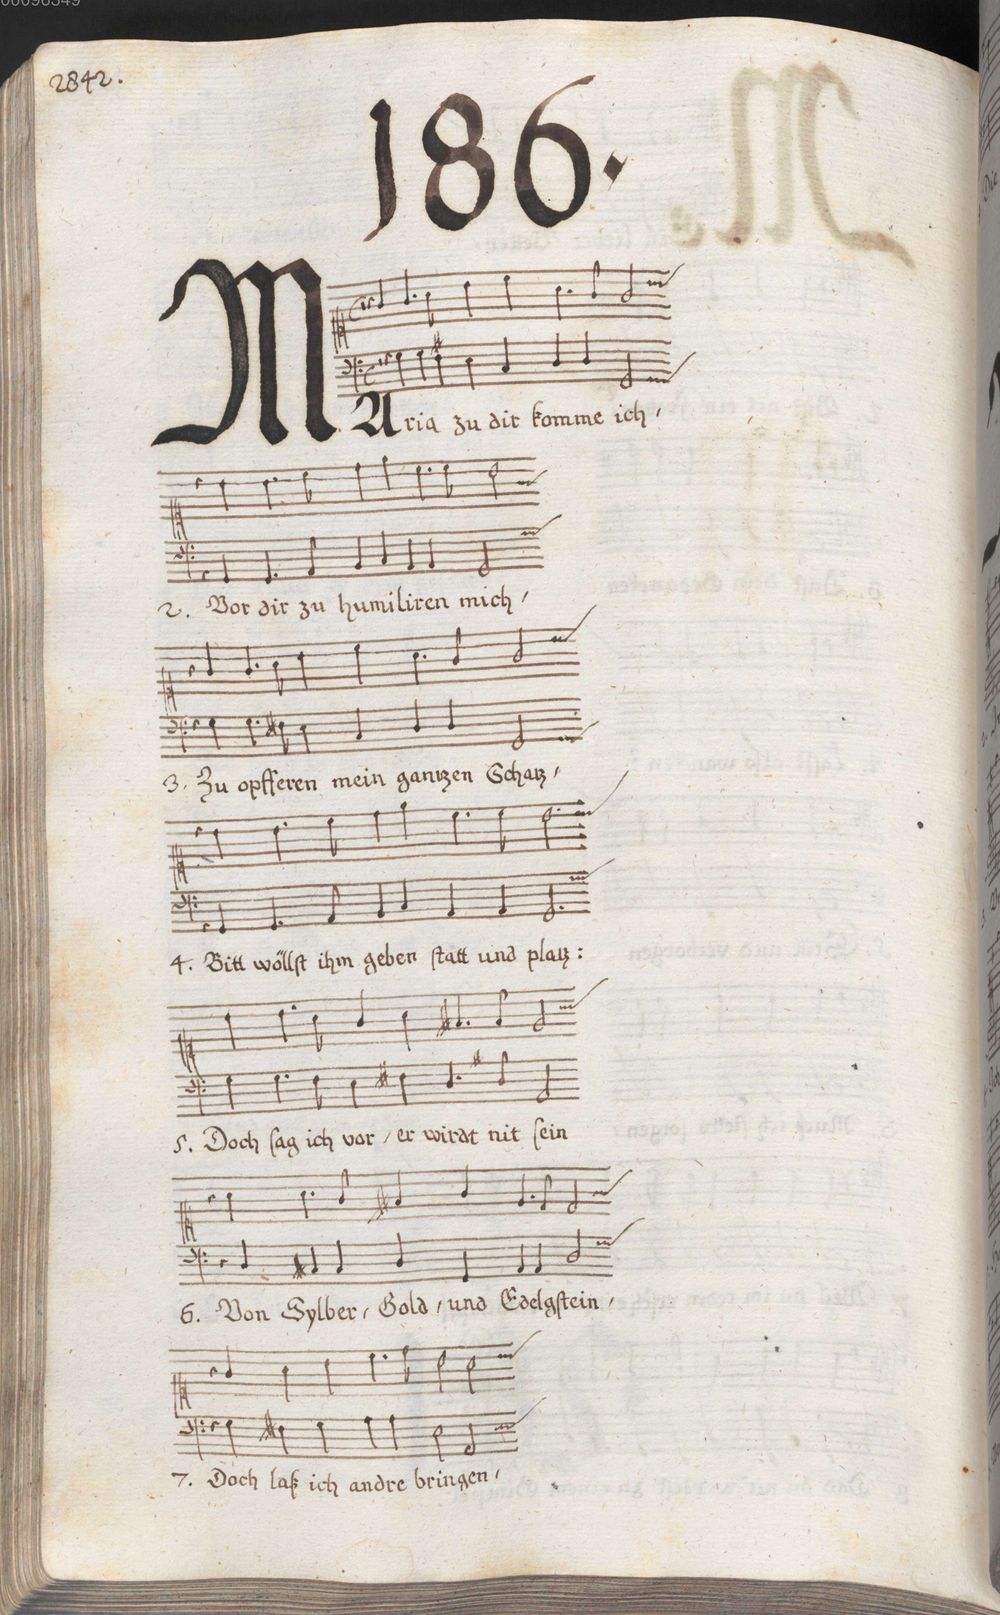 2842.
186.
MAria zu dir komme ich,
2. Vor dir zu humiliren mich,
3. Zu opfferen mein gantzen Schatz,
4. Bitt wöllst ihm geben statt und platz:
5. Doch sag ich vor, er wirdt nit sein
6. Von Sylber, Gold, und Edelgstein,
7. Doch laß ich andre bringen,